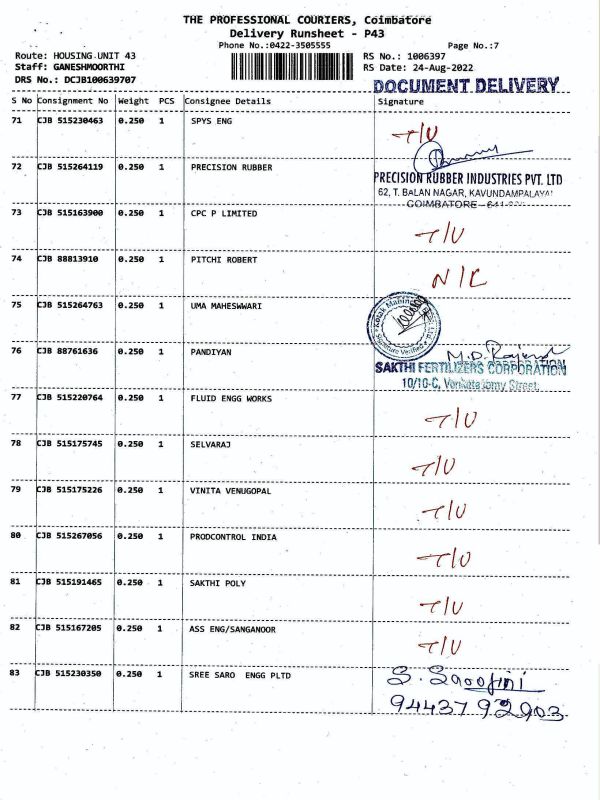 THE PROFESSIONAL COURIERS, Coimbatore
Delivery Runsheet - P43
Phone No.:0422-3505555 Page No.:7
Route: HOUSING UNIT 43 RS No.: 1006397
Staff: GANESHMOORTHI RS Date: 24-Aug-2022
DRS No.: DCJB100639707
DOCUMENT DELIVERY
S No Consignment No Weight PCS Consignee Details Signature
71 CJB 515230463 0.250 1 SPYS ENG T/U
72 CJB 515264119 0.250 1 PRECISION RUBBER
PRECISION RUBBER INDUSTRIES PVT. LTD
62, T. BALAN NAGAR, KAVUNDAMPALAYAM
COIMBATORE - 641
73 CJB 515163900 0.250 1 CPC P LIMITED T/U
74 CJB 88813910 0.250 1 PITCHI ROBERT N/C
75 CJB 515264763 0.250 1 UMA MAHESWWARI
Kotak Mahindra
Signature Verified
76 CJB 88761636 0.250 1 PANDIYAN
SAKTHI FERTILIZERS CORPORATION
10/10-C, Street,
77 CJB 515220764 0.250 1 FLUID ENGG WORKS T/U
78 CJB 515175745 0.250 1 SELVARAJ T/U
79 CJB 515175226 0.250 1 VINITA VENUGOPAL T/U
80 CJB 515267056 0.250 1 PRODCONTROL INDIA T/U
81 CJB 515191465 0.250 1 SAKTHI POLY T/U
82 CJB 515167205 0.250 1 ASS ENG/SANGANOOR T/U
83 CJB 515230350 0.250 1 SREE SARO ENGG PLTD S. Sarojini
9443792903